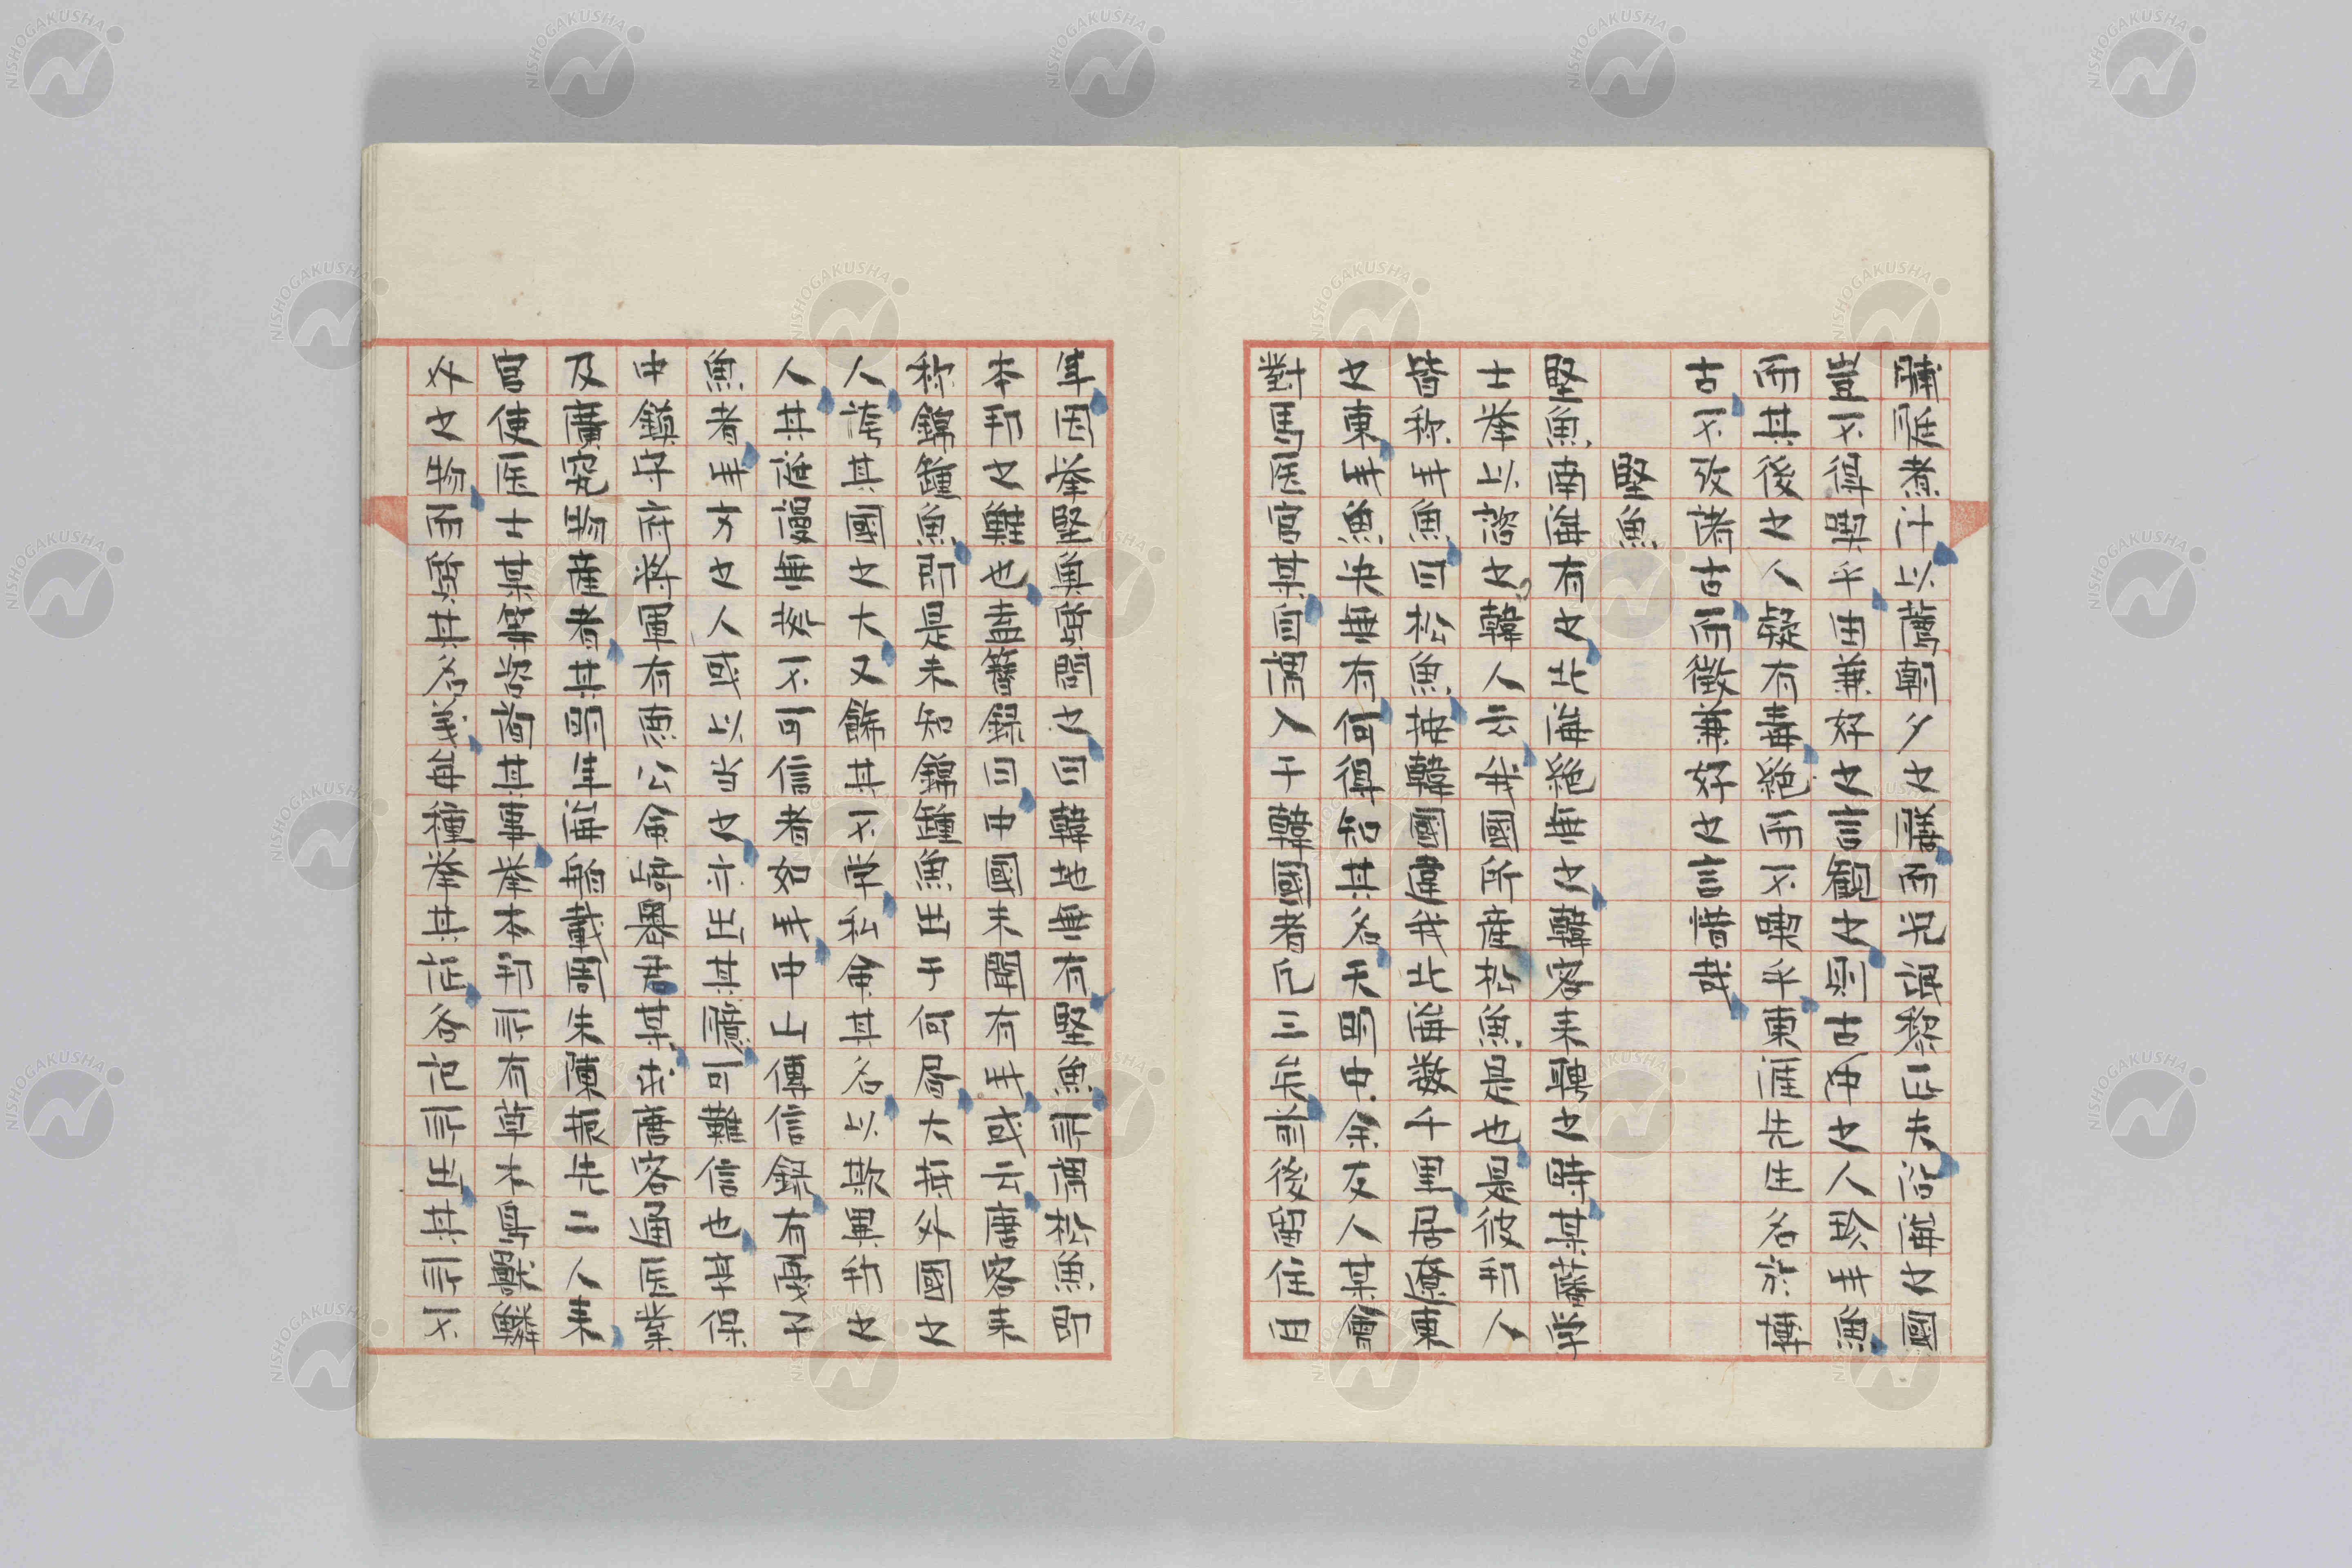 煮汁以薦朝夕之膳而先誨黎氓夫沿海之國
豈不得路乎由兼好之言觀之則古再之人賤此魚
而其後之人疑有毒絕而不畢乎東涯先生名於博
古不攷諸古而徵兼好之言謬哉
堅魚
堅魚南海有之北海絕無之韓客來聘之時某藩弼
士挙以諮之韓人云我國所産松魚是也是彼邦人
皆称此魚曰松魚按韓國僻我北海数千里居僻東
之東此魚決無有何得知其名天明中余友人某會
對馬医官某自謂入于韓國者已三矣前後留住日
年因挙堅魚質問之曰韓地無有堅魚所謂松魚即
本邦之鰱也盍簪録曰中國未聞有此或云唐客来
称鑵鐘魚即是未知鑵鐘魚出于何処大抵外國之
人誇其國之大又餙其不常私命其名以欺異邦之
人其誕謾無状不可信者如此中山傳信録有憂子
魚者此方之人或以当之亦出其臆可難信也某保
中鎮守府将軍有徳公命崎署君某出唐客通医業
及廣究物産者其明年海舶載周朱廣来先二人来
官使医士某等咨詢其事挙本邦所有草木鳥獣鱗
介之物而質其名義毎種挙其能各記所出其所不